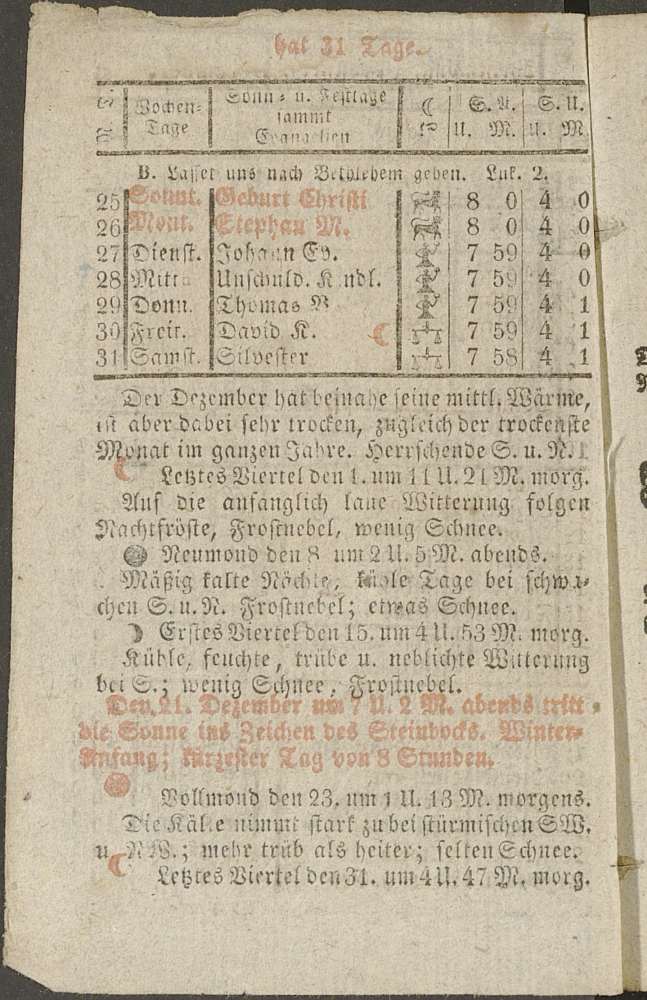 hat 31 Tage.
Wochen-Tage Sonn- u. Festtage sammt Evangelien ☾ S. A. S. U.
U. M. U. M.
B. Lasset uns nach Bethlehem gehen. Luk. 2.
25 Sonnt. Geburt Christi 8 0 4 0
26 Mont. Stephan M. 8 0 4 0
27 Dienst. Johann Ev. 7 59 4 0
28 Mittw Unschuld. Kindl. 7 59 4 0
29 Donn. Thomas B 7 59 4 1
30 Freit. David K. ☾ 7 59 4 1
31 Samst. Silvester 7 58 4 1
Der Dezember hat beinahe seine mittl. Wärme,
ist aber dabei sehr trocken, zugleich der trockenste
Monat im ganzen Jahre. Herrschende S. u. N.
☾ Letztes Viertel den 1. um 11 U. 21 M. morg.
Auf die anfanglich laue Witterung folgen
Nachtfröste, Frostnebel, wenig Schnee.
Neumond den 8 um 2 U. 5 M. abends.
Mäßig kalte Nächte, kühle Tage bei schwa-
chen S. u. N. Frostnebel; etwas Schnee.
☽ Erstes Viertel den 15. um 4 U. 53 M. morg.
Kühle, feuchte, trübe u. neblichte Witterung
bei S.; wenig Schnee, Frostnebel.
Den 21. Dezember um 7 U. 2 M. abends tritt
die Sonne ins Zeichen des Steinbocks. Winter-
Anfang; kürzester Tag von 8 Stunden.
Vollmond den 23. um 1 U. 13 M. morgens.
Die Kälte nimmt stark zu bei stürmischen SW.
u. NW.; mehr trüb als heiter; selten Schnee.
☾ Letztes Viertel den 31. um 4 U. 47 M. morg.